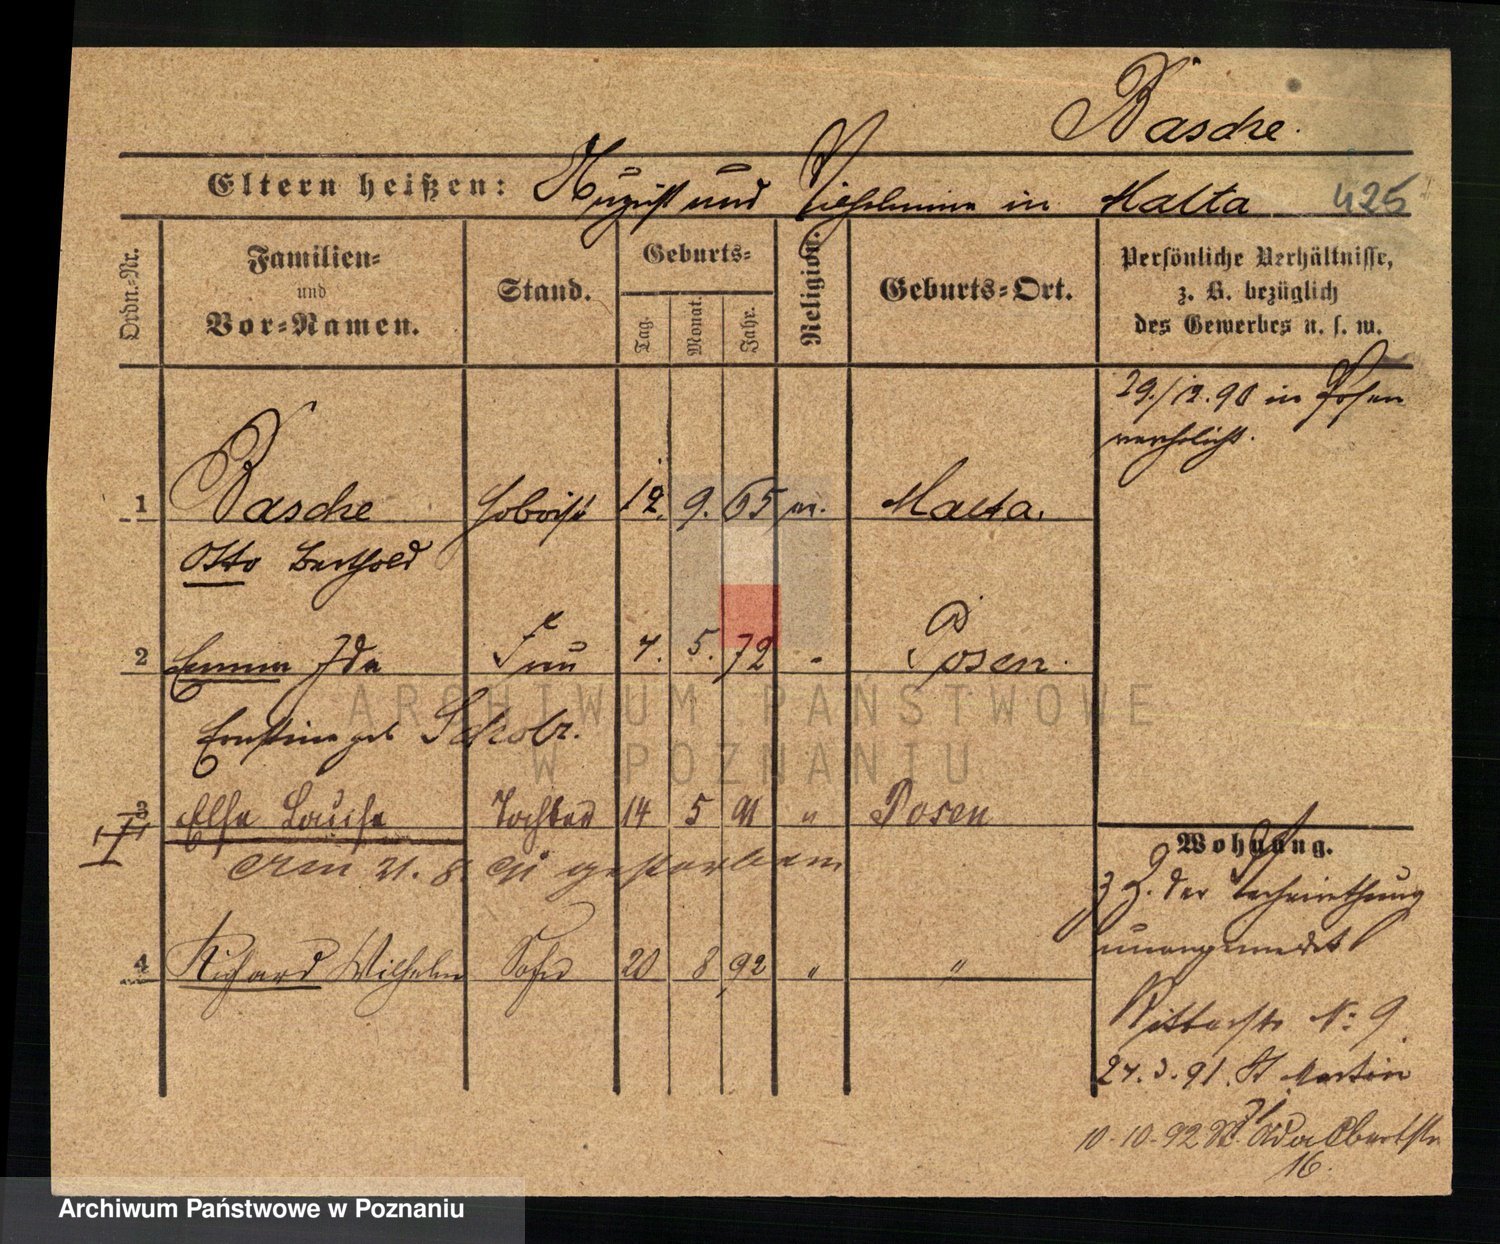 Basche.
Eltern heißen: August und Wilhelmine in Malta 425
Ordn.-Nr.
Familien-
und
Vor-Namen.
Stand.
Geburts-
Tag.
Monat.
Jahr.
Religion.
Geburts-Ort.
Persönliche Verhältnisse,
z. B. bezüglich
des Gewerbes u. s. w.
29./12.90 in Posen
verehelicht.
1 Basche Hoboist 12. 9. 65 ev. Malta.
Otto Berthold
2 Emma Ida Frau 7. 5. 72 " Posen.
Ernestine geb
3 Else Louise Tochter 14 5 91 " Posen
am 21. 8. 91 gestorben
4 Richard Wilhelm Sohn 20 8 92 " "
Wohnung.
z Z. der
unangemeldet
No 9
24.3.91. St Martin
10-10-92
16.
ARCHIWUM PAŃSTWOWE
W POZNANIU
Archiwum Państwowe w Poznaniu